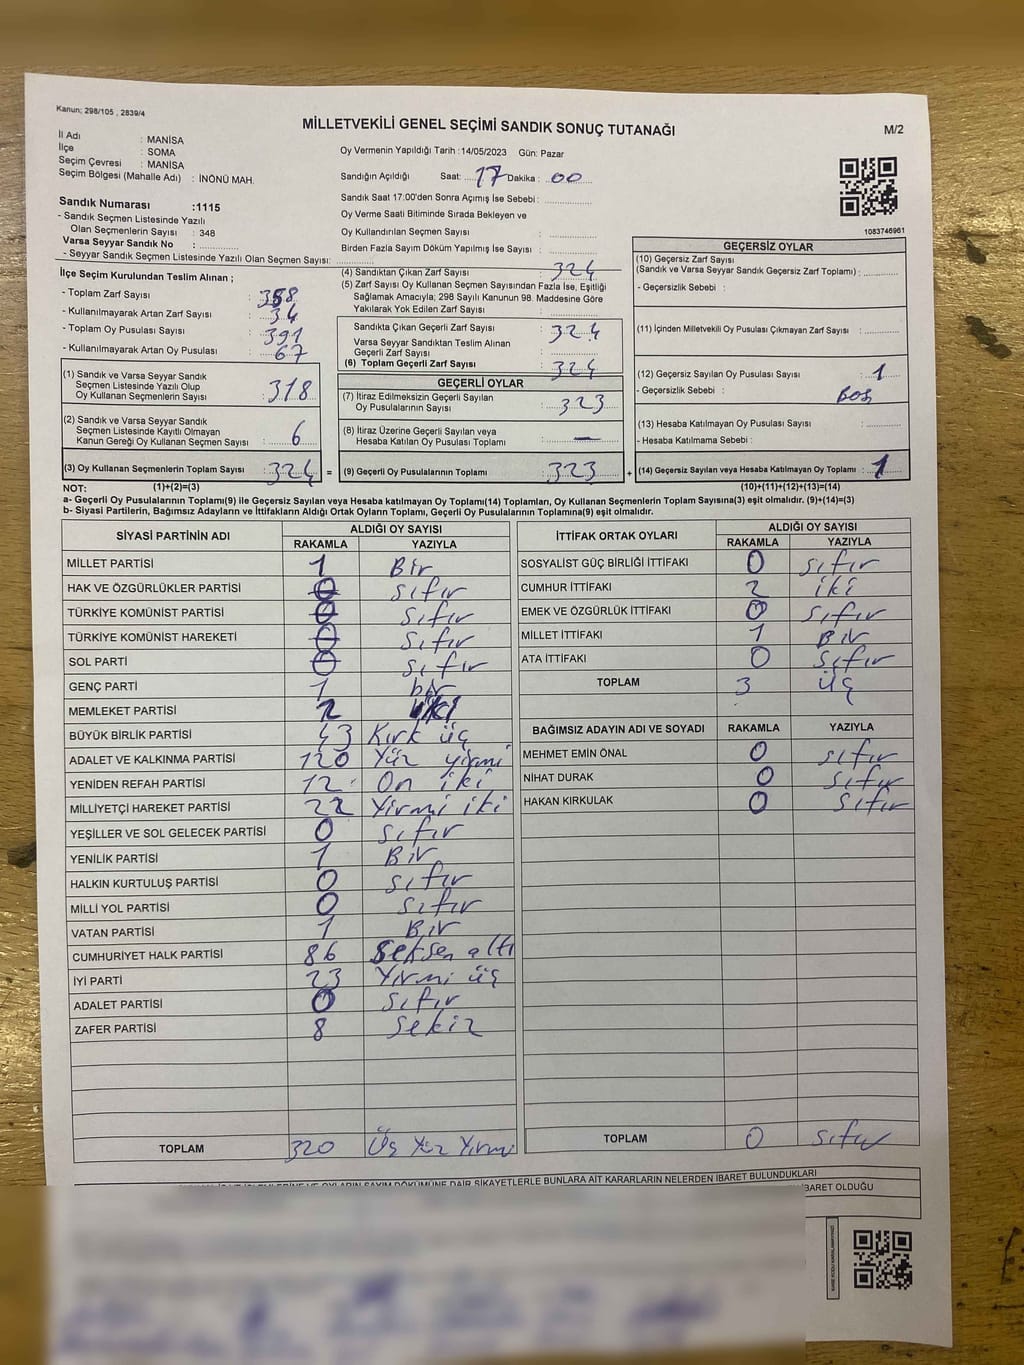 Kanun; 298/105 , 2839/4
MİLLETVEKİLİ GENEL SEÇİMİ SANDIK SONUÇ TUTANAĞI
M/2
İl Adı : MANİSA
İlçe : SOMA
Seçim Çevresi : MANİSA
Seçim Bölgesi (Mahalle Adı) : İNÖNÜ MAH.
Oy Vermenin Yapıldığı Tarih : 14/05/2023 Gün: Pazar
Sandığın Açıldığı Saat: 17 Dakika : 00
Sandık Saat 17:00'den Sonra Açımış İse Sebebi :
Oy Verme Saati Bitiminde Sırada Bekleyen ve
Oy Kullandırılan Seçmen Sayısı :
Birden Fazla Sayım Döküm Yapılmış İse Sayısı :
1083746961
Sandık Numarası :1115
- Sandık Seçmen Listesinde Yazılı
Olan Seçmenlerin Sayısı : 348
Varsa Seyyar Sandık No :
- Seyyar Sandık Seçmen Listesinde Yazılı Olan Seçmen Sayısı:
İlçe Seçim Kurulundan Teslim Alınan ;
- Toplam Zarf Sayısı : 358
- Kullanılmayarak Artan Zarf Sayısı : 34
- Toplam Oy Pusulası Sayısı : 391
- Kullanılmayarak Artan Oy Pusulası : 67
(1) Sandık ve Varsa Seyyar Sandık
Seçmen Listesinde Yazılı Olup
Oy Kullanan Seçmenlerin Sayısı : 318
(2) Sandık ve Varsa Seyyar Sandık
Seçmen Listesinde Kayıtlı Olmayan
Kanun Gereği Oy Kullanan Seçmen Sayısı : 6
(3) Oy Kullanan Seçmenlerin Toplam Sayısı : 324 =
(4) Sandıktan Çıkan Zarf Sayısı : 324
(5) Zarf Sayısı Oy Kullanan Seçmen Sayısından Fazla İse, Eşitliği
Sağlamak Amacıyla; 298 Sayılı Kanunun 98. Maddesine Göre
Yakılarak Yok Edilen Zarf Sayısı :
Sandıkta Çıkan Geçerli Zarf Sayısı : 324
Varsa Seyyar Sandıktan Teslim Alınan
Geçerli Zarf Sayısı :
(6) Toplam Geçerli Zarf Sayısı : 324
GEÇERLİ OYLAR
(7) İtiraz Edilmeksizin Geçerli Sayılan
Oy Pusulalarının Sayısı : 323
(8) İtiraz Üzerine Geçerli Sayılan veya
Hesaba Katılan Oy Pusulası Toplamı : —
(9) Geçerli Oy Pusulalarının Toplamı : 323 +
GEÇERSİZ OYLAR
(10) Geçersiz Zarf Sayısı
(Sandık ve Varsa Seyyar Sandık Geçersiz Zarf Toplamı) :
- Geçersizlik Sebebi :
(11) İçinden Milletvekili Oy Pusulası Çıkmayan Zarf Sayısı :
(12) Geçersiz Sayılan Oy Pusulası Sayısı : 1
- Geçersizlik Sebebi : Boş
(13) Hesaba Katılmayan Oy Pusulası Sayısı :
- Hesaba Katılmama Sebebi :
(14) Geçersiz Sayılan veya Hesaba Katılmayan Oy Toplamı : 1
NOT: (1)+(2)=(3) (10)+(11)+(12)+(13)=(14)
a- Geçerli Oy Pusulalarının Toplamı(9) ile Geçersiz Sayılan veya Hesaba katılmayan Oy Toplamı(14) Toplamları, Oy Kullanan Seçmenlerin Toplam Sayısına(3) eşit olmalıdır. (9)+(14)=(3)
b- Siyasi Partilerin, Bağımsız Adayların ve İttifakların Aldığı Ortak Oyların Toplamı, Geçerli Oy Pusulalarının Toplamına(9) eşit olmalıdır.
SİYASİ PARTİNİN ADI ALDIĞI OY SAYISI
RAKAMLA YAZIYLA
MİLLET PARTİSİ 1 Bir
HAK VE ÖZGÜRLÜKLER PARTİSİ 0 sıfır
TÜRKİYE KOMÜNİST PARTİSİ 0 sıfır
TÜRKİYE KOMÜNİST HAREKETİ 0 sıfır
SOL PARTİ 0 sıfır
GENÇ PARTİ 1 bir
MEMLEKET PARTİSİ 2 iki
BÜYÜK BİRLİK PARTİSİ 43 Kırk üç
ADALET VE KALKINMA PARTİSİ 120 Yüz yirmi
YENİDEN REFAH PARTİSİ 12 On iki
MİLLİYETÇİ HAREKET PARTİSİ 22 Yirmi iki
YEŞİLLER VE SOL GELECEK PARTİSİ 0 sıfır
YENİLİK PARTİSİ 1 Bir
HALKIN KURTULUŞ PARTİSİ 0 sıfır
MİLLİ YOL PARTİSİ 0 sıfır
VATAN PARTİSİ 1 Bir
CUMHURİYET HALK PARTİSİ 86 Seksen altı
İYİ PARTİ 23 Yirmi üç
ADALET PARTİSİ 0 sıfır
ZAFER PARTİSİ 8 Sekiz
TOPLAM 320 Üç Yüz Yirmi
İTTİFAK ORTAK OYLARI ALDIĞI OY SAYISI
RAKAMLA YAZIYLA
SOSYALİST GÜÇ BİRLİĞİ İTTİFAKI 0 sıfır
CUMHUR İTTİFAKI 2 iki
EMEK VE ÖZGÜRLÜK İTTİFAKI 0 sıfır
MİLLET İTTİFAKI 1 Bir
ATA İTTİFAKI 0 sıfır
TOPLAM 3 üç
BAĞIMSIZ ADAYIN ADI VE SOYADI RAKAMLA YAZIYLA
MEHMET EMİN ÖNAL 0 sıfır
NİHAT DURAK 0 sıfır
HAKAN KIRKULAK 0 sıfır
TOPLAM 0 sıfır
OYLARIN SAYIM DÖKÜMÜNE DAİR ŞİKAYETLERLE BUNLARA AİT KARARLARIN NELERDEN İBARET BULUNDUKLARI
İBARET OLDUĞU